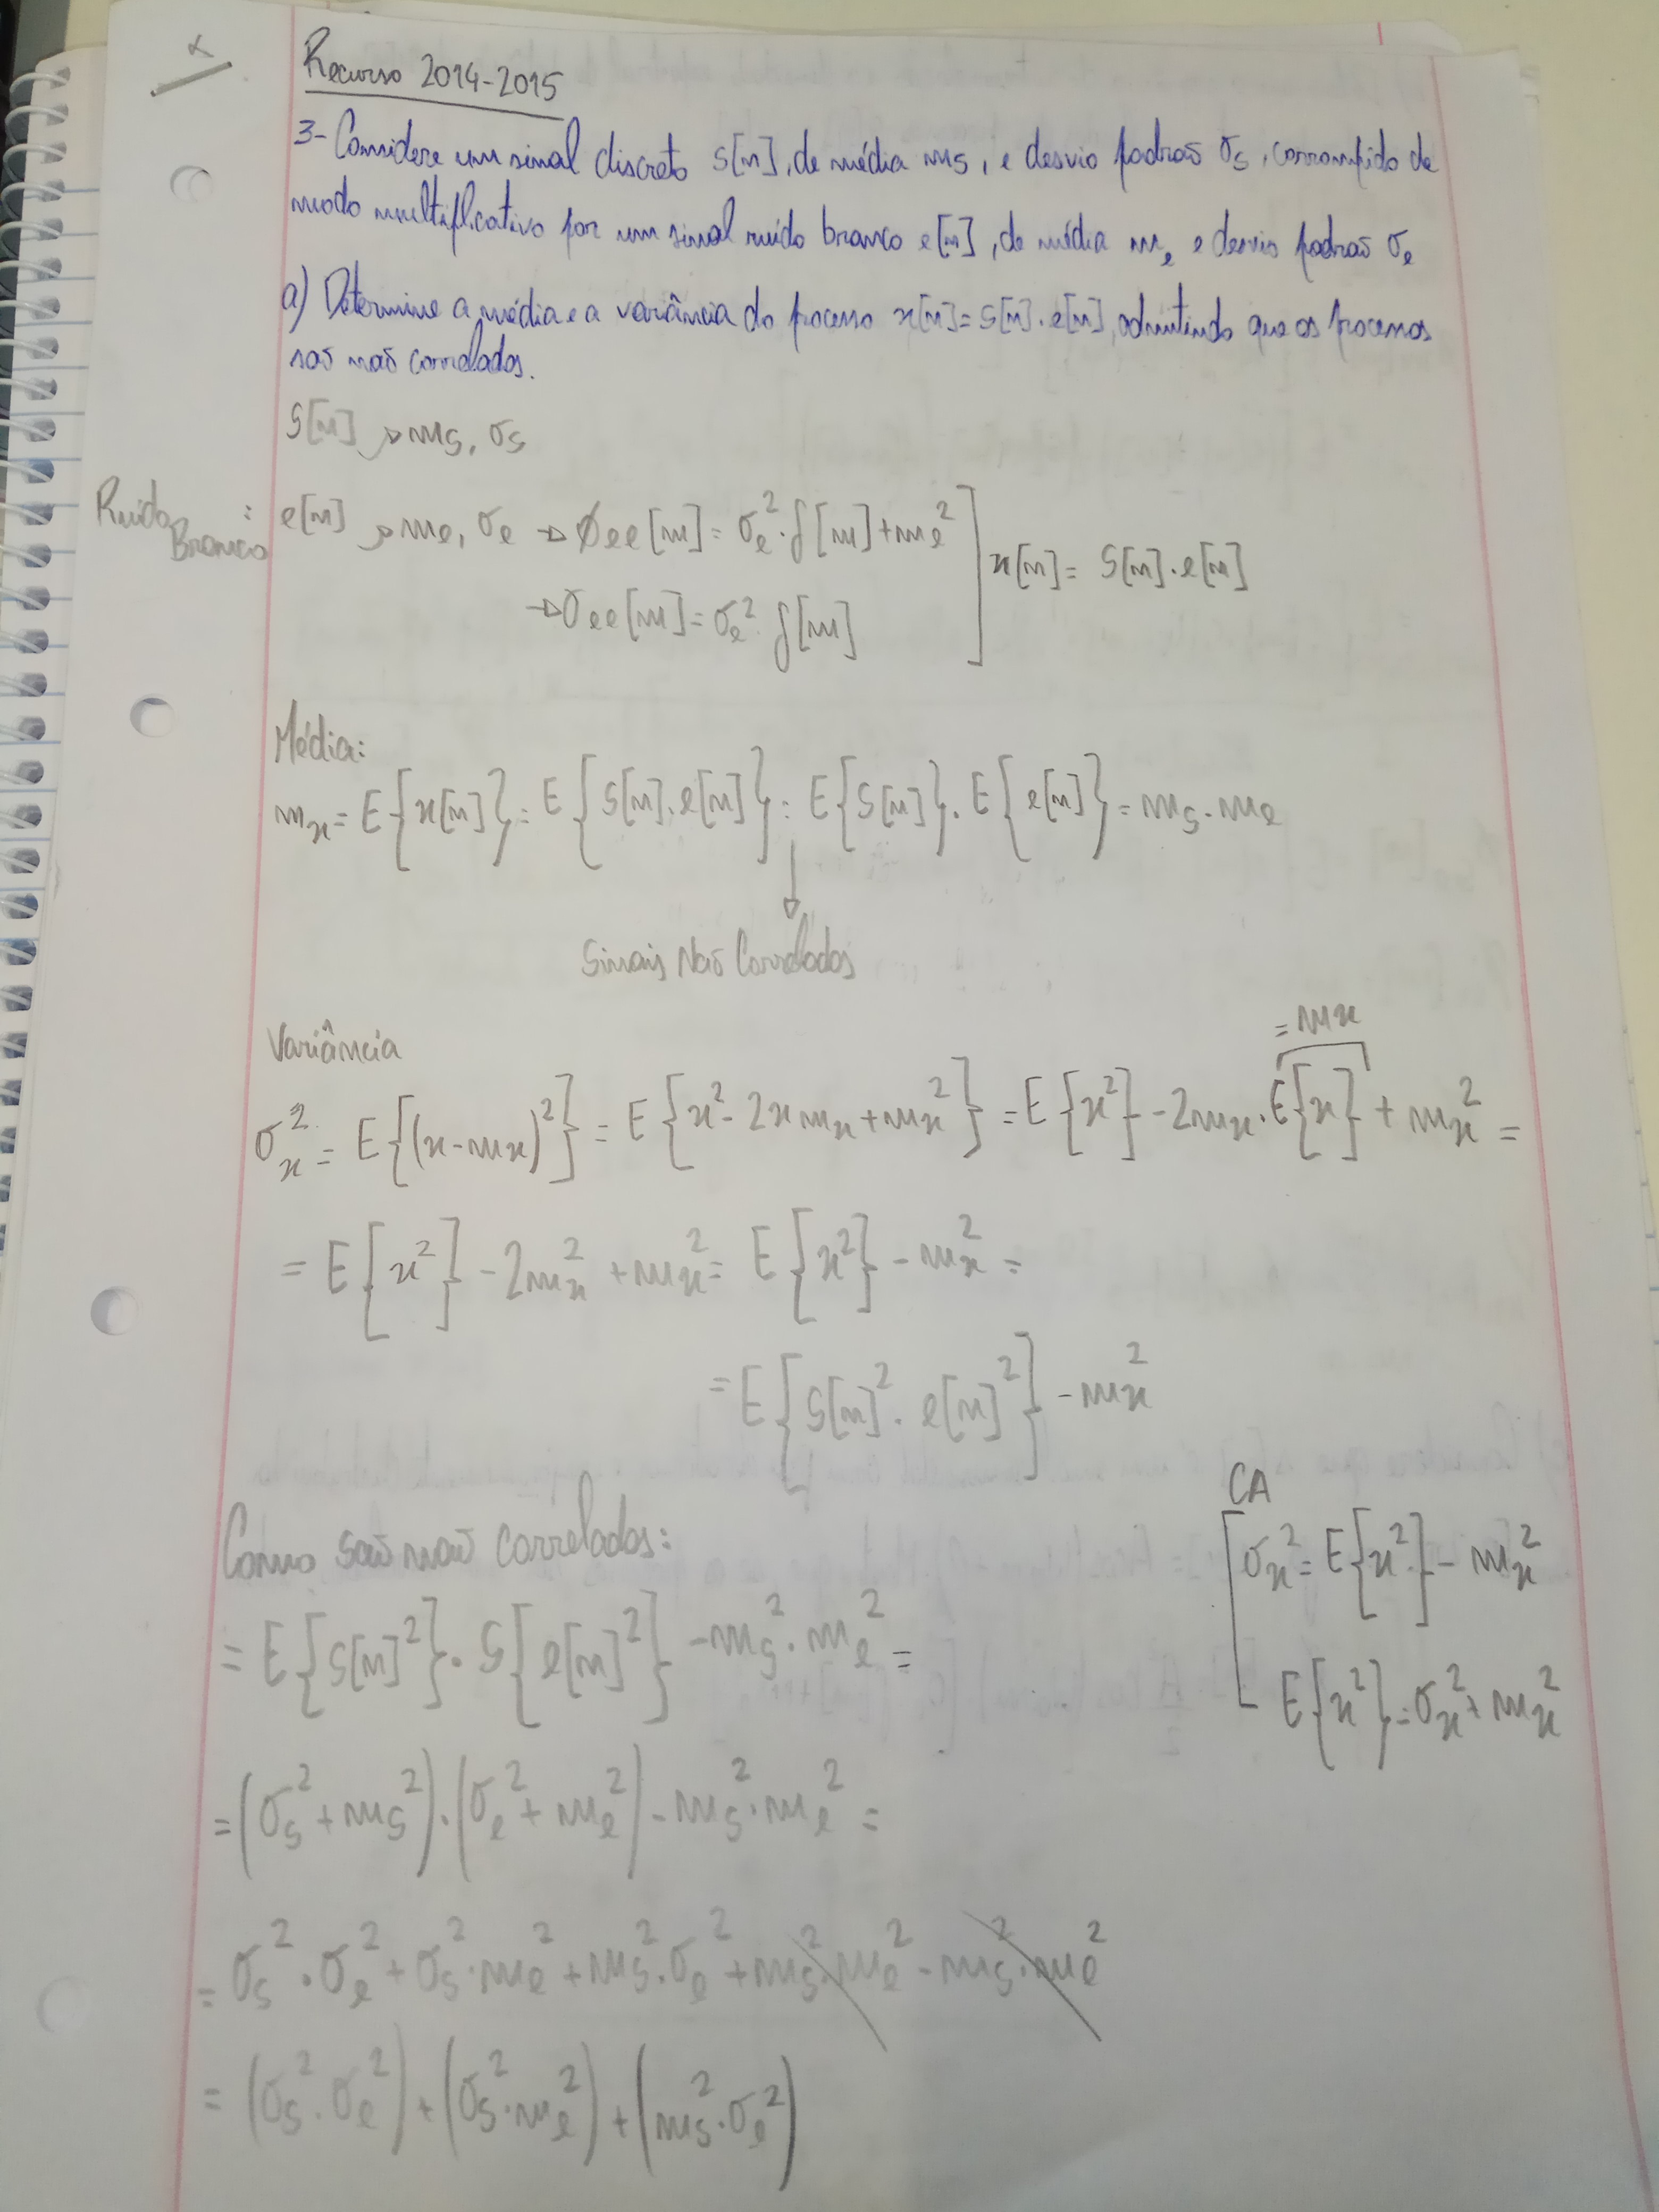 Recurso 2014-2015
3- Considere um sinal discreto s[n], de média ms, e desvio padrão σs, corrompido de
modo multiplicativo por um sinal ruído branco e[n], de média me e desvio padrão σe
a) Determine a média e a variância do processo x[n]=s[n].e[n], admitindo que os processos
são não correlados.
s[n] → ms, σs
Ruído Branco : e[n] → me, σe → Øee[m] = σe². δ[m] + me²
→ σee[m] = σe². δ[m]
x[n] = s[n].e[n]
Média:
mx = E{x[n]} = E{s[n].e[n]} = E{s[n]}.E{e[n]} = ms.me
Sinais Não Correlados
Variância
= mx
σx² = E{(x-mx)²} = E{x²-2xmx+mx²} = E{x²} - 2mx.E{x} + mx² =
= E{x²} - 2mx² + mx² = E{x²} - mx² =
= E{s[n]². e[n]²} - mx²
Como são não correlados:
= E{s[n]²}. S{e[n]²} - ms². me² =
= (σs² + ms²).(σe² + me²) - ms². me² =
= σs². σe² + σs². me² + ms². σe² + ms². me² - ms². me²
= (σs². σe²) + (σs². me²) + (ms². σe²)
CA
σx² = E{x²} - mx²
E{x²} = σx² + mx²